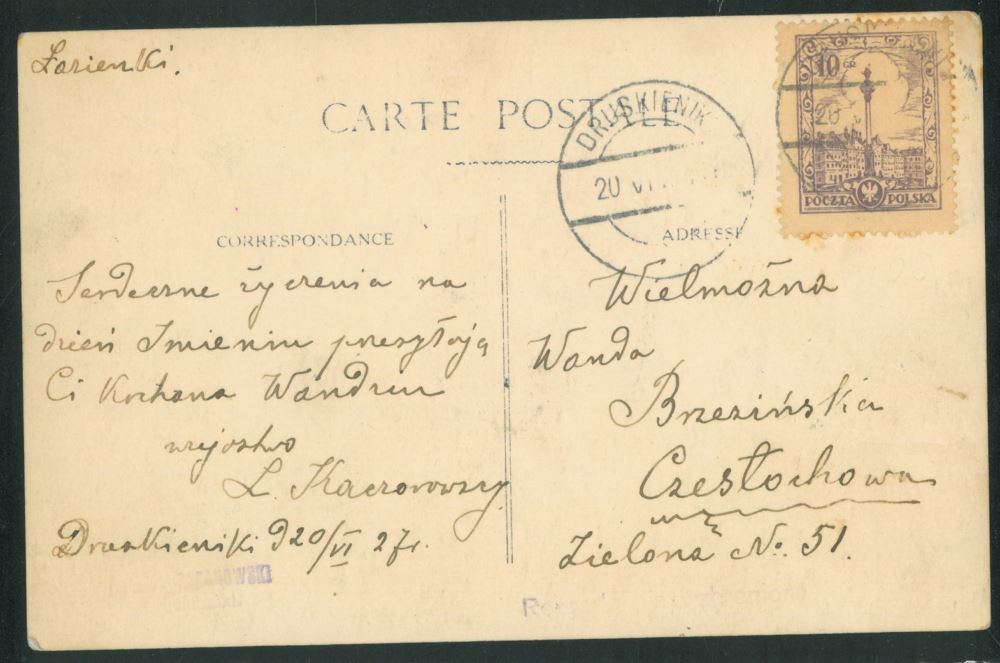 Łazienki.
CARTE POSTALE
DRUSKIENIK
20 VI
20
10 GR
POCZTA POLSKA
CORRESPONDANCE
ADRESSE
Serdeczne życzenia na
dzień Imienin przesyłają
Ci Kochana Wandziu
wujostwo
L. Kaczorowscy
Druskieniki d 20/VI 27 r.
Wielmożna
Wanda
Brzezińska
Częstochowa
Zielona No. 51.